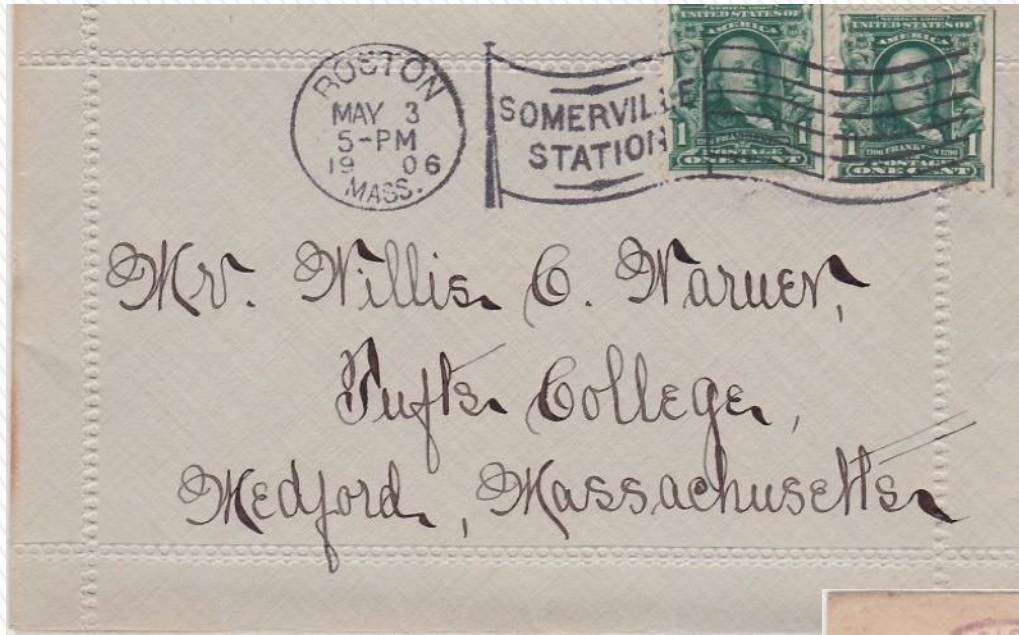 BOSTON
MAY 3
5-PM
19 06
MASS.
SOMERVILLE
STATION
UNITED STATES OF
AMERICA
1 1
POSTAGE
ONE CENT
SERIES 1902
UNITED STATES OF
AMERICA
1 1
1706 FRANKLIN 1790
POSTAGE
ONE CENT
Mr. Willis C. Warner,
Tufts College,
Medford, Massachusetts